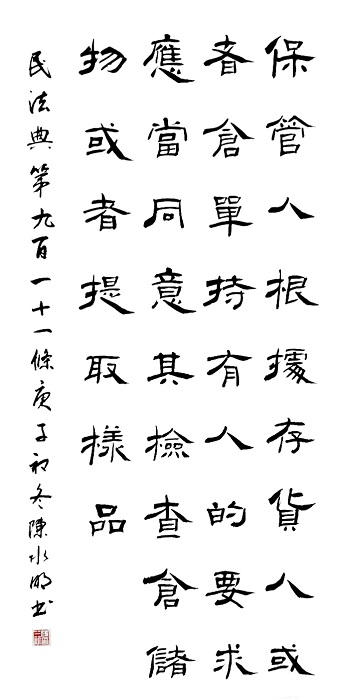 保管人根據存貨人或
者倉單持有人的要求
應當同意其檢查倉儲
物或者提取樣品
民法典第九百一十一條庚子初冬陳水明书